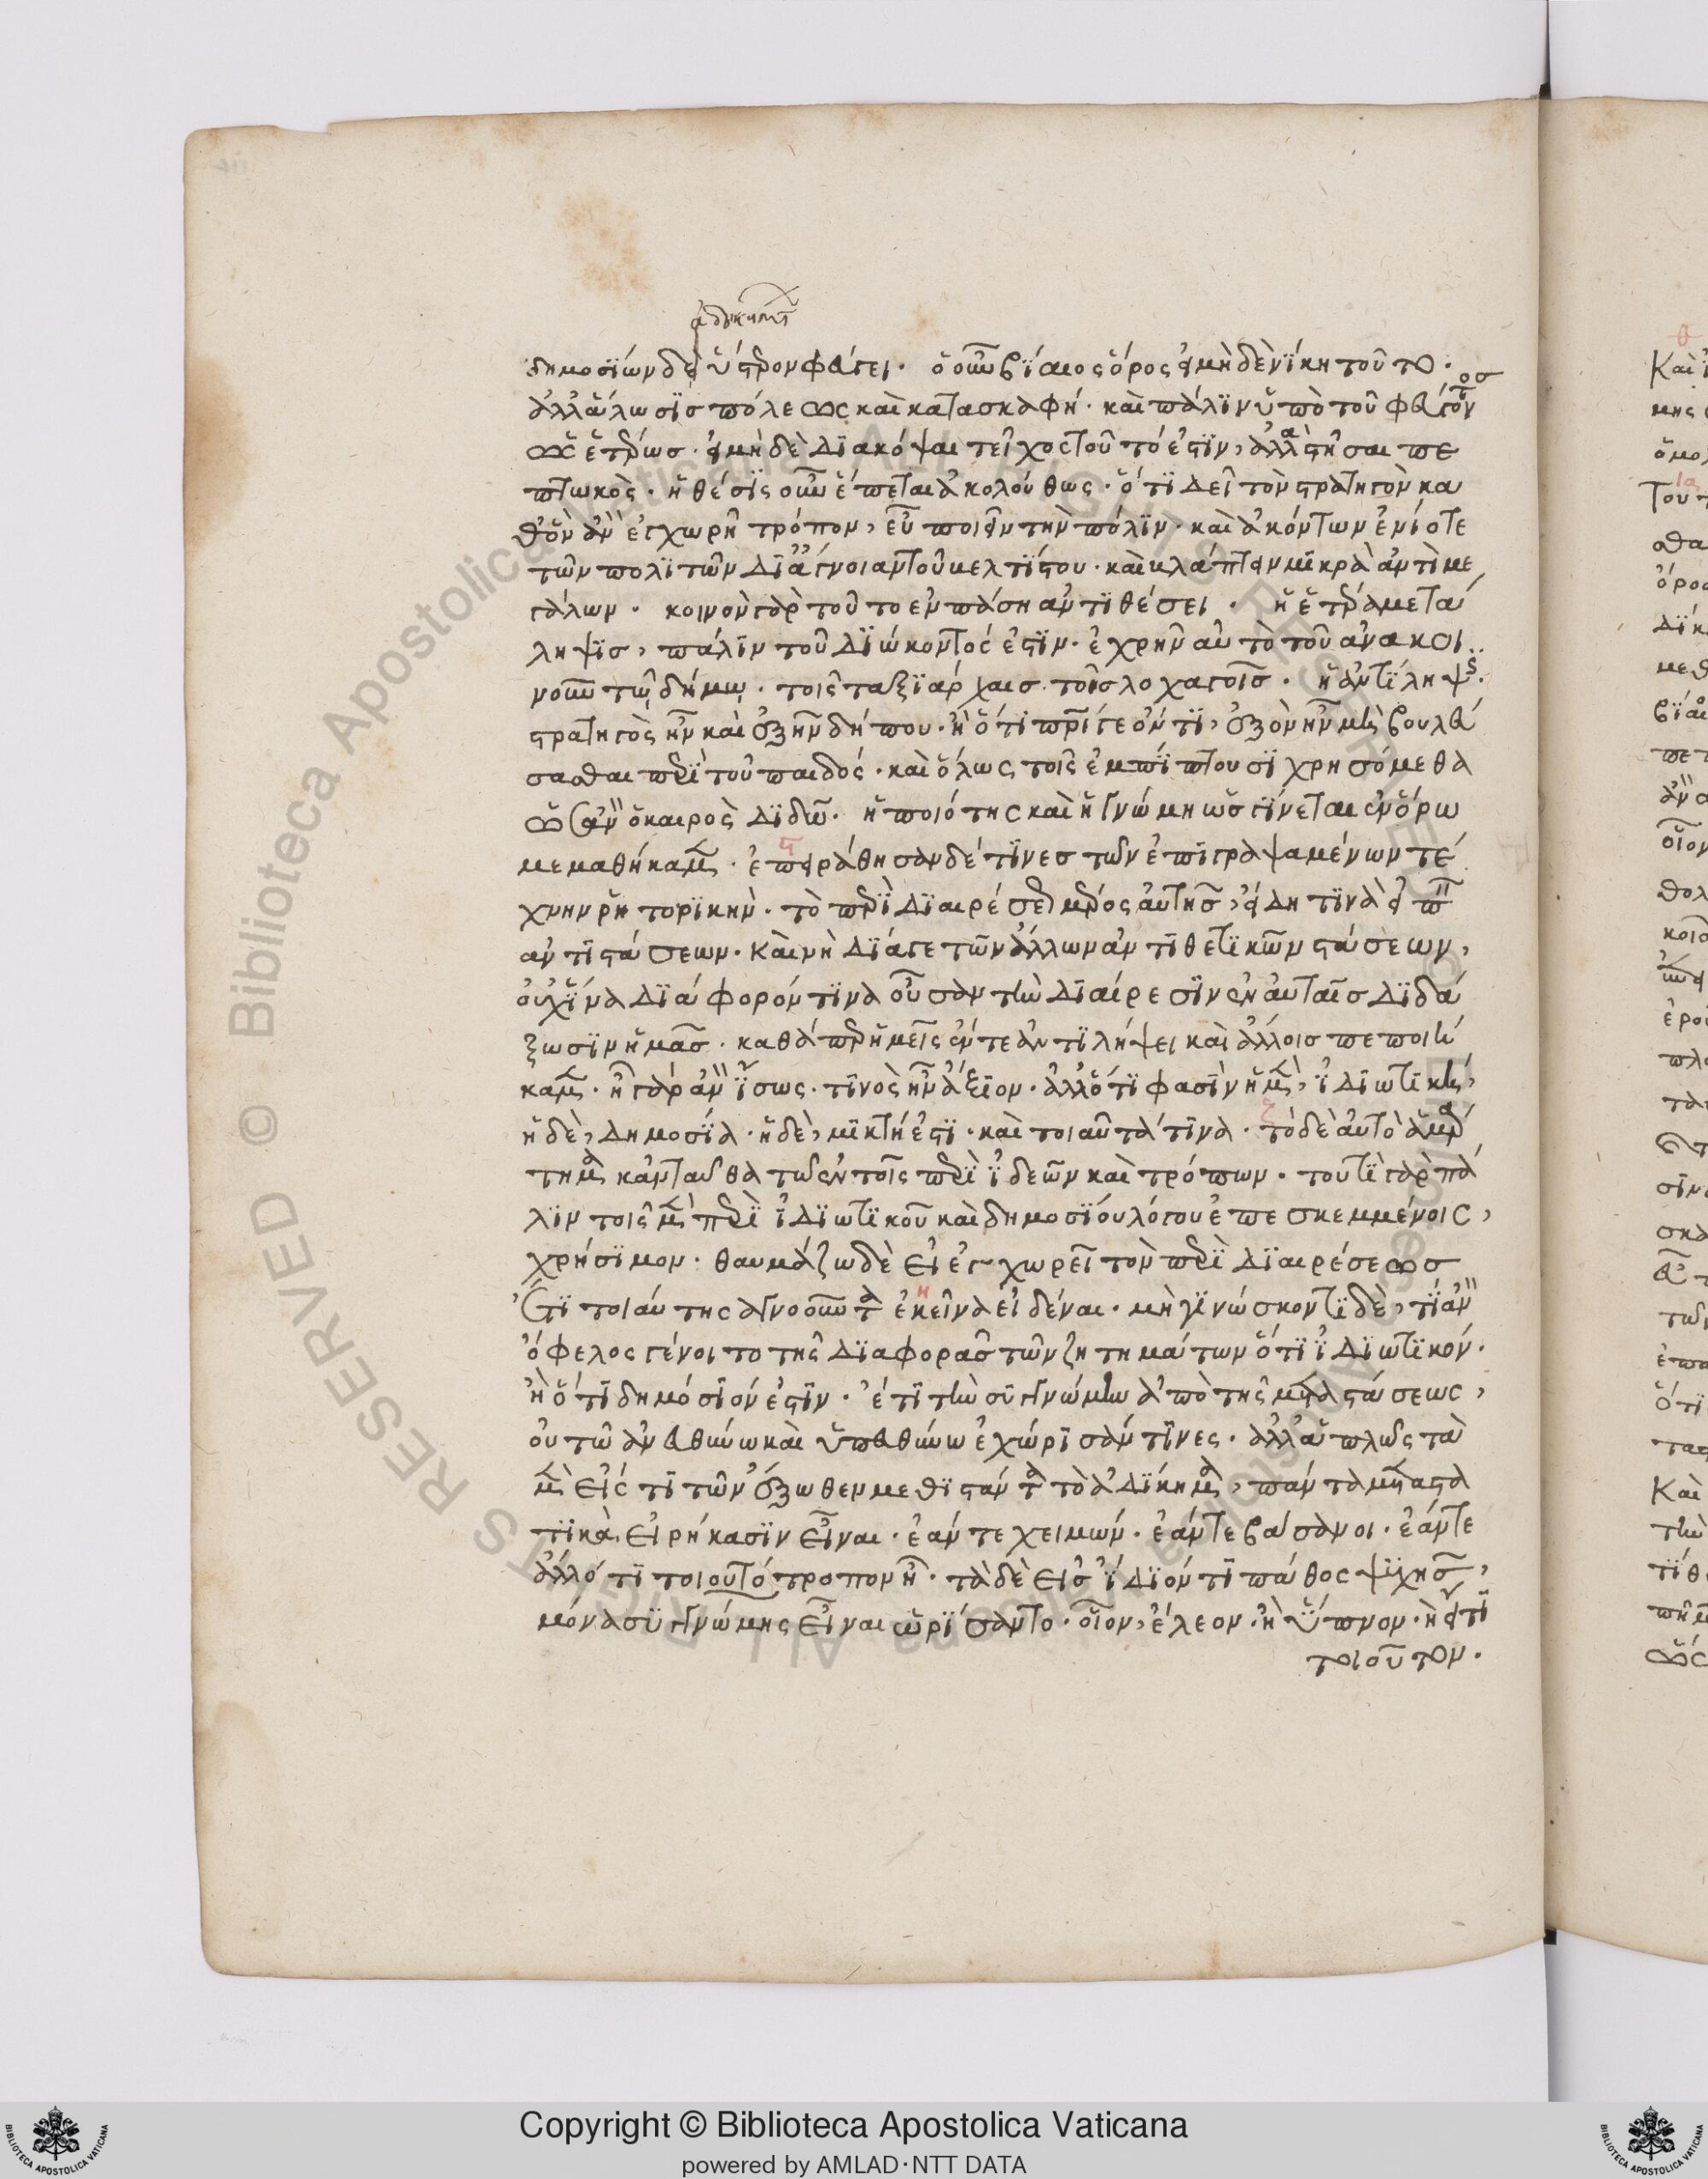 ἀδικημάτων
δημοσίων δὲ ὕστερον φεύγει. ὁ οὖν βίαιος ὅρος εἰ μηδὲ νίκη τοῦτο.
ἀλλ' ἅλωσις πόλεως καὶ κατασκαφή. καὶ πάλιν ὑπὸ τοῦ φεύγοντος
ὡς ἑτέρως. εἰ μηδὲ διακόψαι τεῖχος τοῦτό ἐστιν, ἀλλὰ στῆσαι πε
πτωκός. ἡ θέσις οὖν ἕπεται ἀκολούθως. ὅτι δεῖ τὸν στρατηγὸν κα
θ' ὃν ἂν ἐγχωρῇ τρόπον, εὖ ποιεῖν τὴν πόλιν. καὶ ἀκόντων ἐνίοτε
τῶν πολιτῶν δι' ἄγνοιαν τοῦ βελτίστου. καὶ βλάπτειν μικρὰ ἀντὶ με
γάλων. κοινὸν γὰρ τοῦτο ἐν πάσῃ ἀντιθέσει. ἡ ἑτέρα μετά
ληψις, πάλιν τοῦ διώκοντός ἐστιν. ἐχρῆν αὐτὸ τοῦ ἀνακοι
νοῦν τῷ δήμῳ. τοῖς ταξιάρχαις. τοῖς λοχαγοῖς. ἡ ἀντίληψις.
στρατηγὸς ἦν καὶ ἐξῆν δήπου. ἢ ὅτι πατρί γε ὄντι, ἐξὸν ἦν μὴ βουλεύ
σασθαι περὶ τοῦ παιδός. καὶ ὅλως τοῖς ἐμπίπτουσι χρησόμεθα
ὡς ἂν ὁ καιρὸς διδῷ. ἡ ποιότης καὶ ἡ γνώμη ὡς γίνεται ἐν ὅρῳ
μεμαθήκαμεν. ἐπειράθησαν δέ τινες τῶν ἐπιγραψαμένων τέ
χνην ῥητορικήν. τὸ περὶ διαιρέσεων μέρος αὐτῆς, εἴδη τινὰ εἰπεῖν
ἀντιστάσεων. καὶ νὴ Δία γε τῶν ἄλλων ἀντιθετικῶν στάσεων,
οὐχ ἵνα διάφορόν τινα οὖσαν τὴν διαίρεσιν ἐν αὐταῖς διδά
ξωσιν ἡμᾶς. καθάπερ ἡμεῖς ἔν τε ἀντιλήψει καὶ ἄλλοις πεποιή
καμεν. ἦ γὰρ ἂν ἴσως. τινὸς ἦν ἄξιον. ἀλλ' ὅτι φασὶν ἡ μὲν, ἰδιωτική,
ἡ δὲ, δημοσία. ἡ δὲ, μικτή ἐστι. καὶ τοιαῦτά τινα. τὸ δὲ αὐτὸ ἁμάρ
τημα κἀνταῦθα τῷ ἐν τοῖς περὶ ἰδεῶν καὶ τρόπων. τουτὶ γὰρ πά
λιν τοῖς μὲν περὶ ἰδιωτικοῦ καὶ δημοσίου λόγου ἐπεσκεμμένοις,
χρήσιμον. θαυμάζω δὲ εἰ ἐγχωρεῖ τὸν περὶ διαιρέσεως
ἔτι τοιαύτης ἀγνοοῦντα ἐκεῖνα εἰδέναι. μὴ γινώσκοντι δὲ, τί ἂν
ὄφελος γένοιτο τῆς διαφορᾶς τῶν ζητημάτων ὅτι ἰδιωτικόν.
ἢ ὅτι δημόσιόν ἐστιν. ἔτι τὴν συγγνώμην ἀπὸ τῆς μεταστάσεως,
οὐ τῷ ἀνευθύνῳ καὶ ὑπευθύνῳ ἐχώρισάν τινες. ἀλλ' ἁπλῶς τὰ
μὲν εἴς τι τῶν ἔξωθεν μεθιστάντα τὸ ἀδίκημα, πάντα μετάστα
τικὰ εἰρήκασιν εἶναι. ἐάν τε χειμών. ἐάν τε βάσανοι. ἐάν τε
ἄλλό τι τοιουτότροπον ᾖ. τὰ δὲ εἰς ἴδιόν τι πάθος ψυχῆς,
μόνα συγγνώμης εἶναι ὡρίσαντο. οἷον, ἔλεον. ἢ ὕπνον. ἢ εἴ τι
τοιοῦτον.
Copyright © Biblioteca Apostolica Vaticana
powered by AMLAD·NTT DATA